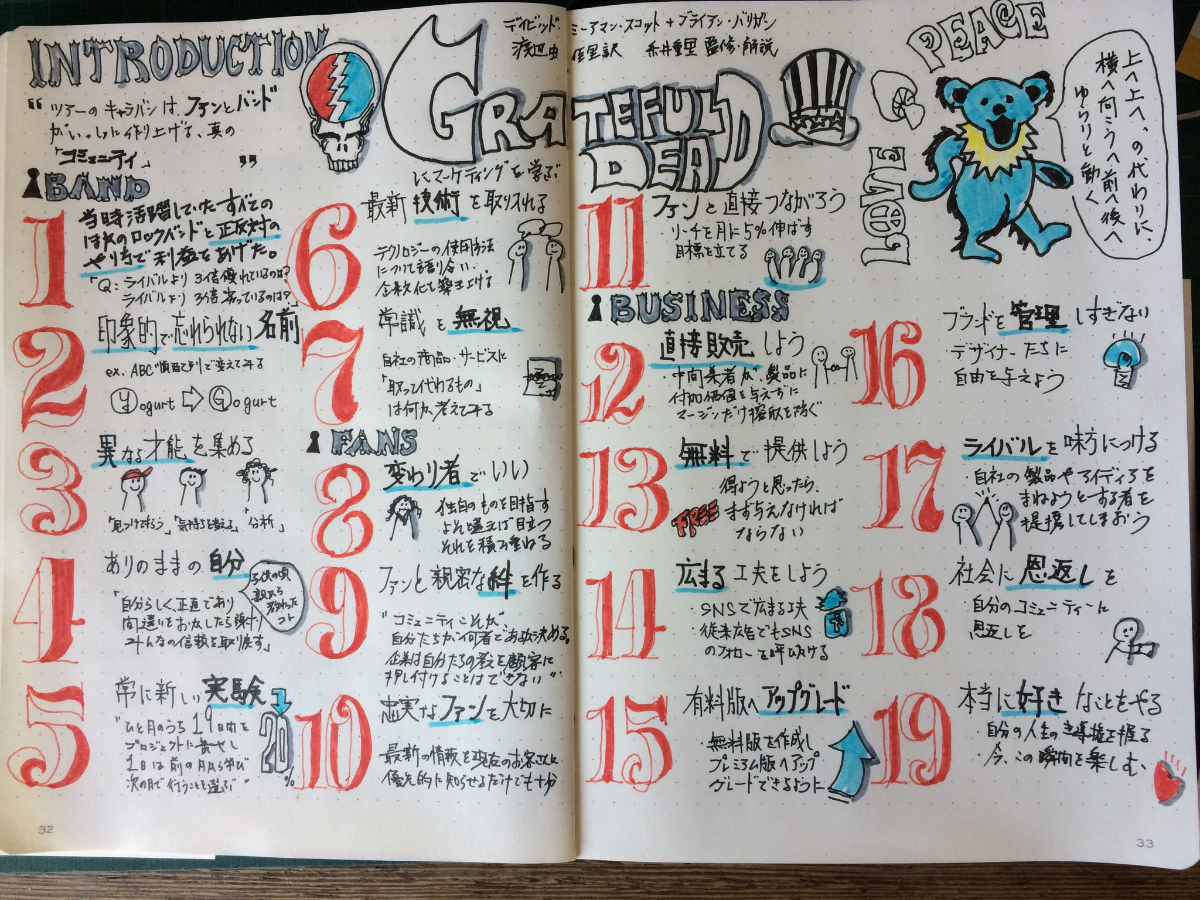 INTRODUCTION
"ツアーのキャラバンは、ファンとバンド
がいっしょに作り上げる、真の
「コミュニティ」"
デイビッド・ミーアマン・スコット+ブライアン・ハリガン
渡辺由佳里訳 糸井重里 監修・解説
GRATEFUL
DEAD
にマーケティングを学ぶ
LOVE & PEACE
上へ上へ、の代わりに
横へ向こうへ前へ後へ
ゆらりと動く
BAND
1
当時活躍していたすべての
ほかのロックバンドと正反対の
やり方で利益をあげた。
「Q:ライバルより3倍優れているのは?
ライバルより3倍劣っているのは?
2
印象的で忘れられない名前
ex. ABC順
で変えてみる
Yogurt ⇨ Gogurt
3
異なる才能を集める
「見つけだそう」「気持ちを」「分析」
4
ありのままの自分
「自分らしく、正直であり
間違いをおかしたら
みんなの信頼を取り戻す」
子供の頃
親から
教わった
コト
5
常に新しい実験
"ひと月のうち19日間を
プロジェクトに費やし
1日は前の月から学び
次の月で行うことを選ぶ"
20%
6
最新技術を取り入れる
テクノロジーの使用方法
について語り合い
企業文化を築き上げる
7
常識を無視
自社の商品・サービスに
「取って代わるもの」
は何か、考えてみる
FANS
8
変わり者でいい
独自のものを目指す
よそと違えば目立つ
それを積み重ねる
9
ファンと親密な絆を作る
"コミュニティこそが、
自分たちが何者であるか決める。
企業は自分たちの考えを顧客に
押し付けることはできない"
10
忠実なファンを大切に
最新の情報を現在のお客さんに
優先的に知らせるだけでも十分
11
ファンと直接つながろう
リーチを月に5%伸ばす
目標を立てる
BUSINESS
12
直接販売しよう
・中間業者が、製品に
付加価値を与えずに
マージンだけ搾取を防ぐ
13
無料で提供しよう
FREE
得ようと思ったら
まず与えなければ
ならない
14
広まる工夫をしよう
・SNSで広まる工夫
・従来広告でもSNS
のフォローを呼びかける
15
有料版へアップグレード
・無料版を作成し
プレミアム版へアップ
グレードできるように
16
ブランドを管理しすぎない
デザイナーたちに
自由を与えよう
17
ライバルを味方につける
・自社の製品やアイディアを
まねようとする者を
提携してしまおう
18
社会に恩返しを
自分のコミュニティーに
恩返しを
19
本当に好きなことをやる
自分の人生の主導権を握る
今、この瞬間を楽しむ
32
33